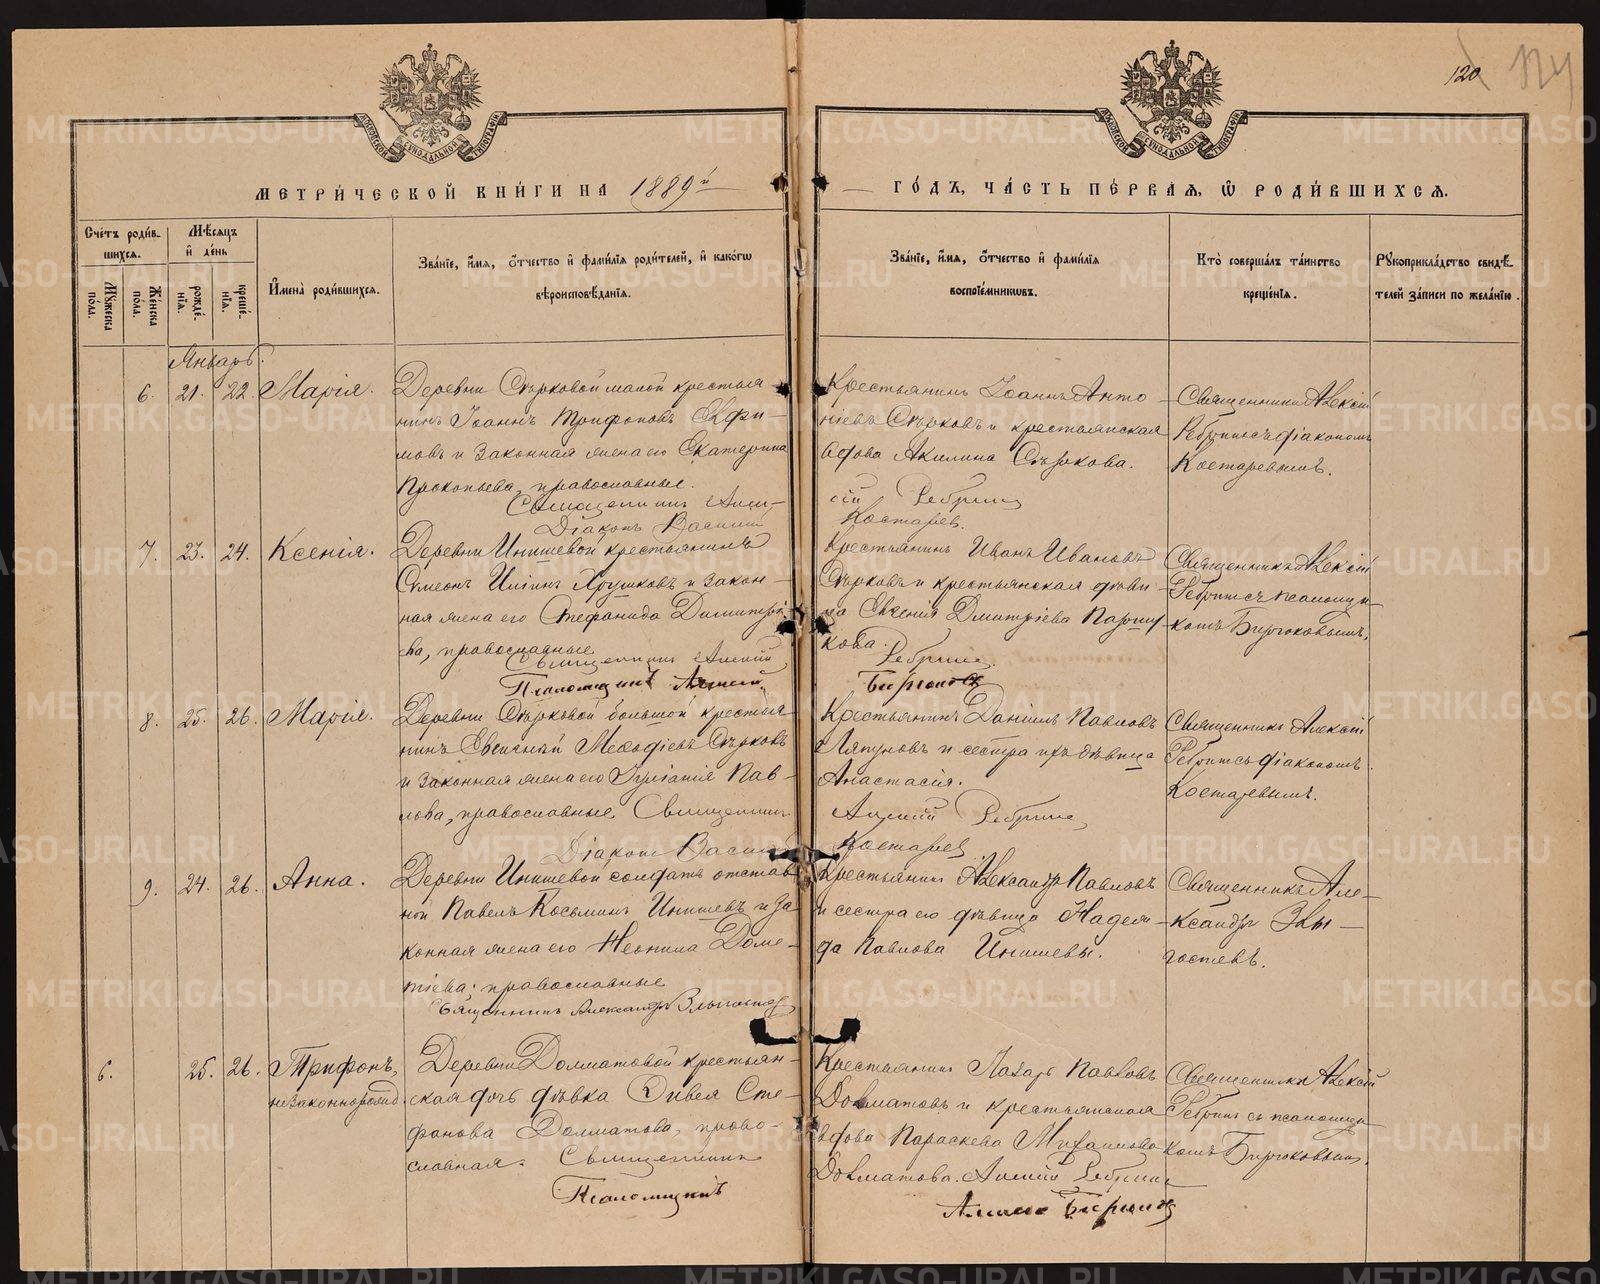 120
МОСКОВСКОЙ СѴНОДАЛЬНОЙ ТИПОГРАФІИ
МОСКОВСКОЙ СѴНОДАЛЬНОЙ ТИПОГРАФІИ
МЕТРИ́ЧЕСКОЙ КНИ́ГИ НА 1889й
ГО́ДЪ, ЧА́СТЬ ПЕ́РВАЯ, Ѡ РОДИ́ВШИХСЯ.
Сче́тъ роди́вшихся.
Мꙋ́жеска по́ла.
Же́нска по́ла.
Мѣ́сяцъ и҆ де́нь
рожде́нїя.
креще́нїя.
И҆мена̀ роди́вшихся.
Зва́нїе, и҆́мя, ѻ҆́тчество и҆ фами́лїя роди́телей, и҆ како́гѡ
вѣроисповѣ́данїя.
Зва́нїе, и҆́мя, ѻ҆́тчество и҆ фами́лїя
воспрїе́мникѡвъ.
Кто̀ соверша́лъ та́инство
креще́нїя.
Рꙋкоприкла́дство свидѣ́-
телей за́писи по жела́нїю.
Январь.
6. 21. 22. Марія.
Деревни Сѣрковой малой крестья-
нинъ Іоаннъ Трифоновъ Евфи-
мовъ и законная жена его Екатерина
Прокопьева, православные.
Священникъ Алек-
Діаконъ Василій
Крестьянинъ Іоаннъ Анто-
ніевъ Сѣрковъ и крестьянская
вдова Акилина Сѣркова.
сій Ребринъ
Костаревъ.
Священникъ Алексій
Ребринъ съ діакономъ
Костаревымъ.
7. 23. 24. Ксенія.
Деревни Инишевой крестьянинъ
Симеонъ Илiинъ Хрушковъ и закон-
ная жена его Стефанида Димитріе-
ва, православные
Священникъ Алексій
Псаломщикъ Алексей
Крестьянинъ Иванъ Ивановъ
Сѣрковъ и крестьянская дѣви-
ца Евгения Дмитріева
кова.
Ребринъ.
Бирюковъ
Священникъ Алексій
Ребринъ съ псаломщи-
комъ Бирюковымъ.
8. 25. 26. Марія.
Деревни Сѣрковой большой крестья-
нинъ Евгений Меѳодіевъ Сѣрковъ
и законная жена его Іуліанія Пав-
лова, православные. Священникъ
Діаконъ Василій
Крестьянинъ Даніилъ Павловъ
Ляпуновъ и сестра ихъ дѣвица
Анастасія.
Алексій Ребринъ
Костаревъ
Священникъ Алексій
Ребринъ съ діакономъ
Костаревымъ.
9. 24. 26. Анна.
Деревни Инишевой солдатъ отстав-
ной Павелъ Косьминъ Инишевъ и за-
конная жена его Неонила Доме-
тіева; православные
Священникъ Александръ
Крестьянинъ Александръ Павловъ
и сестра его дѣвица Надеж-
да Павлова Инишевы.
Священникъ Але-
ксандръ Злы-
гостевъ.
6. 25. 26. Трифонъ,
незаконнорожд.
Деревни Долматовой крестьян-
ская дочь дѣвка Ѳивея Сте-
фанова Долматова, право-
славная. Священникъ
Псаломщикъ
Крестьянинъ Лазарь Павловъ
Долматовъ и крестьянская
вдова Параскева Михаилова
Долматова. Алексій Ребринъ
Алексей Бирюковъ
Священникъ Алексій
Ребринъ съ псаломщи-
комъ Бирюковымъ.
METRIKI.GASO-URAL.RU